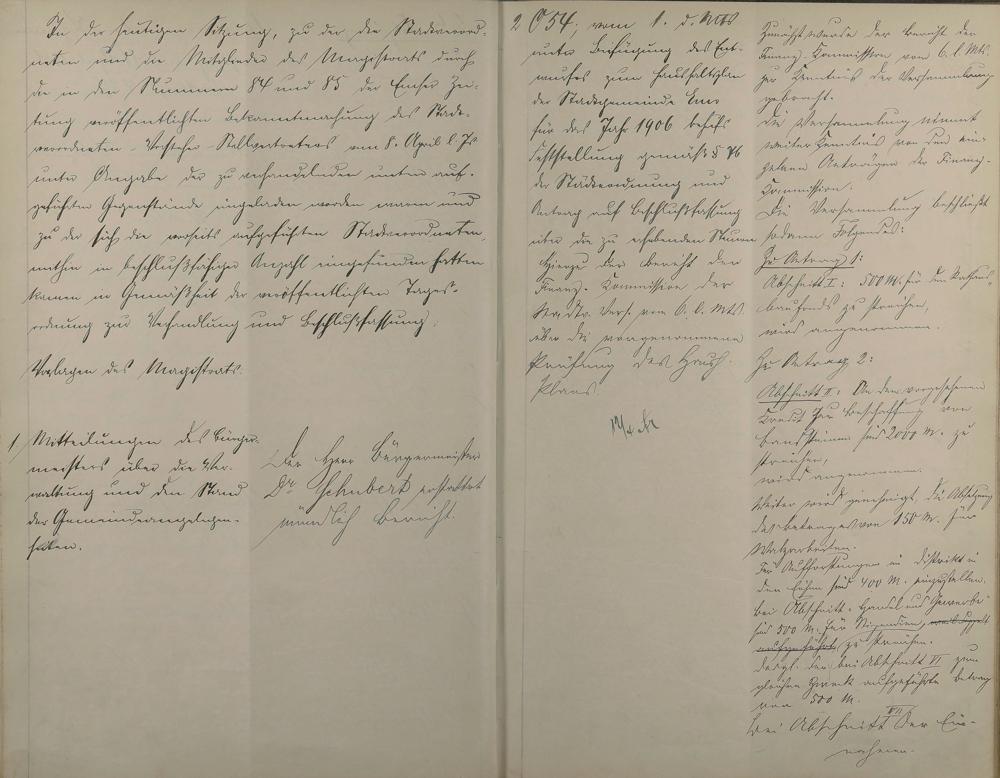 In der heutigen Sitzung, zu der die Stadtverord-
neten und die Mitglieder des Magistrats durch
die in den Nummern 84 und 85 der Emser Zei-
tung veröffentlichten Bekanntmachung des Stadt-
verordneten-Vorsteher-Stellvertreters vom 8. April l. Js
unter Angabe der zu verhandelnden unten auf-
geführten Gegenstände eingeladen worden waren und
zu der sich die vorseits aufgeführten Stadtverordneten,
mithin in beschlußfähiger Anzahl eingefunden hatten
kamen in Gemäßheit der veröffentlichten Tages-
ordnung zur Verhandlung und Beschlußfassung:
Vorlagen des Magistrats.
1, Mitteilungen des Bürger-
meisters über die Ver-
waltung und den Stand
der Gemeindeangelegen-
heiten.
Der Herr Bürgermeister
Dr Schubert erstattet
mündlich Bericht.
2 654, vom 1. d. Mts
unter Beifügung des Ent-
wurfes zum Haushaltsplan
der Stadtgemeinde Ems
für das Jahr 1906 behufs
Feststellung gemäß § 76
der Städteordnung und
Antrag auf Beschlußfassung
über die zu erhebenden Steuern
Hierzu der Bericht der
Finanz-Kommission der
Stadtv. Vers. vom 6. l. Mts.
über die vorgenommene
Prüfung des Haush.
Plans.
Zunächst wurde der Bericht der
Finanz-Kommission vom 6. l. Mts.
zur Kenntnis der Versammlung
gebracht.
Die Versammlung nimmt
weiter Kenntnis von den ein-
zelnen Anträgen der Finanz-
Kommission.
Die Versammlung beschließt
sodann Folgendes:
Zu Antrag 1:
Abschnitt I: 500 M. für den Rathaus-
baufonds zu streichen,
wird angenommen.
Zu Antrag 2:
Abschnitt II: An dem vorgesehenen
Kredit zur Beschaffung von
sind 2000 M. zu
streichen,
wird angenommen.
Weiter wird genehmigt, die Absetzung
des Betrages von 150 M. für
Walzarbeiten.
Für Aufforstungen im Distrikt in
den sind 400 M. einzustellen.
Bei Abschnitt Handel und Gewerbe
sind 500 M. für Stipendien, weil doppelt
aufgeführt, zu streichen.
desgl. der bei Abschnitt VI zum
gleichen Zweck aufgeführte Betrag
von 500 M.
Bei Abschnitt VII der Ein-
nahmen.